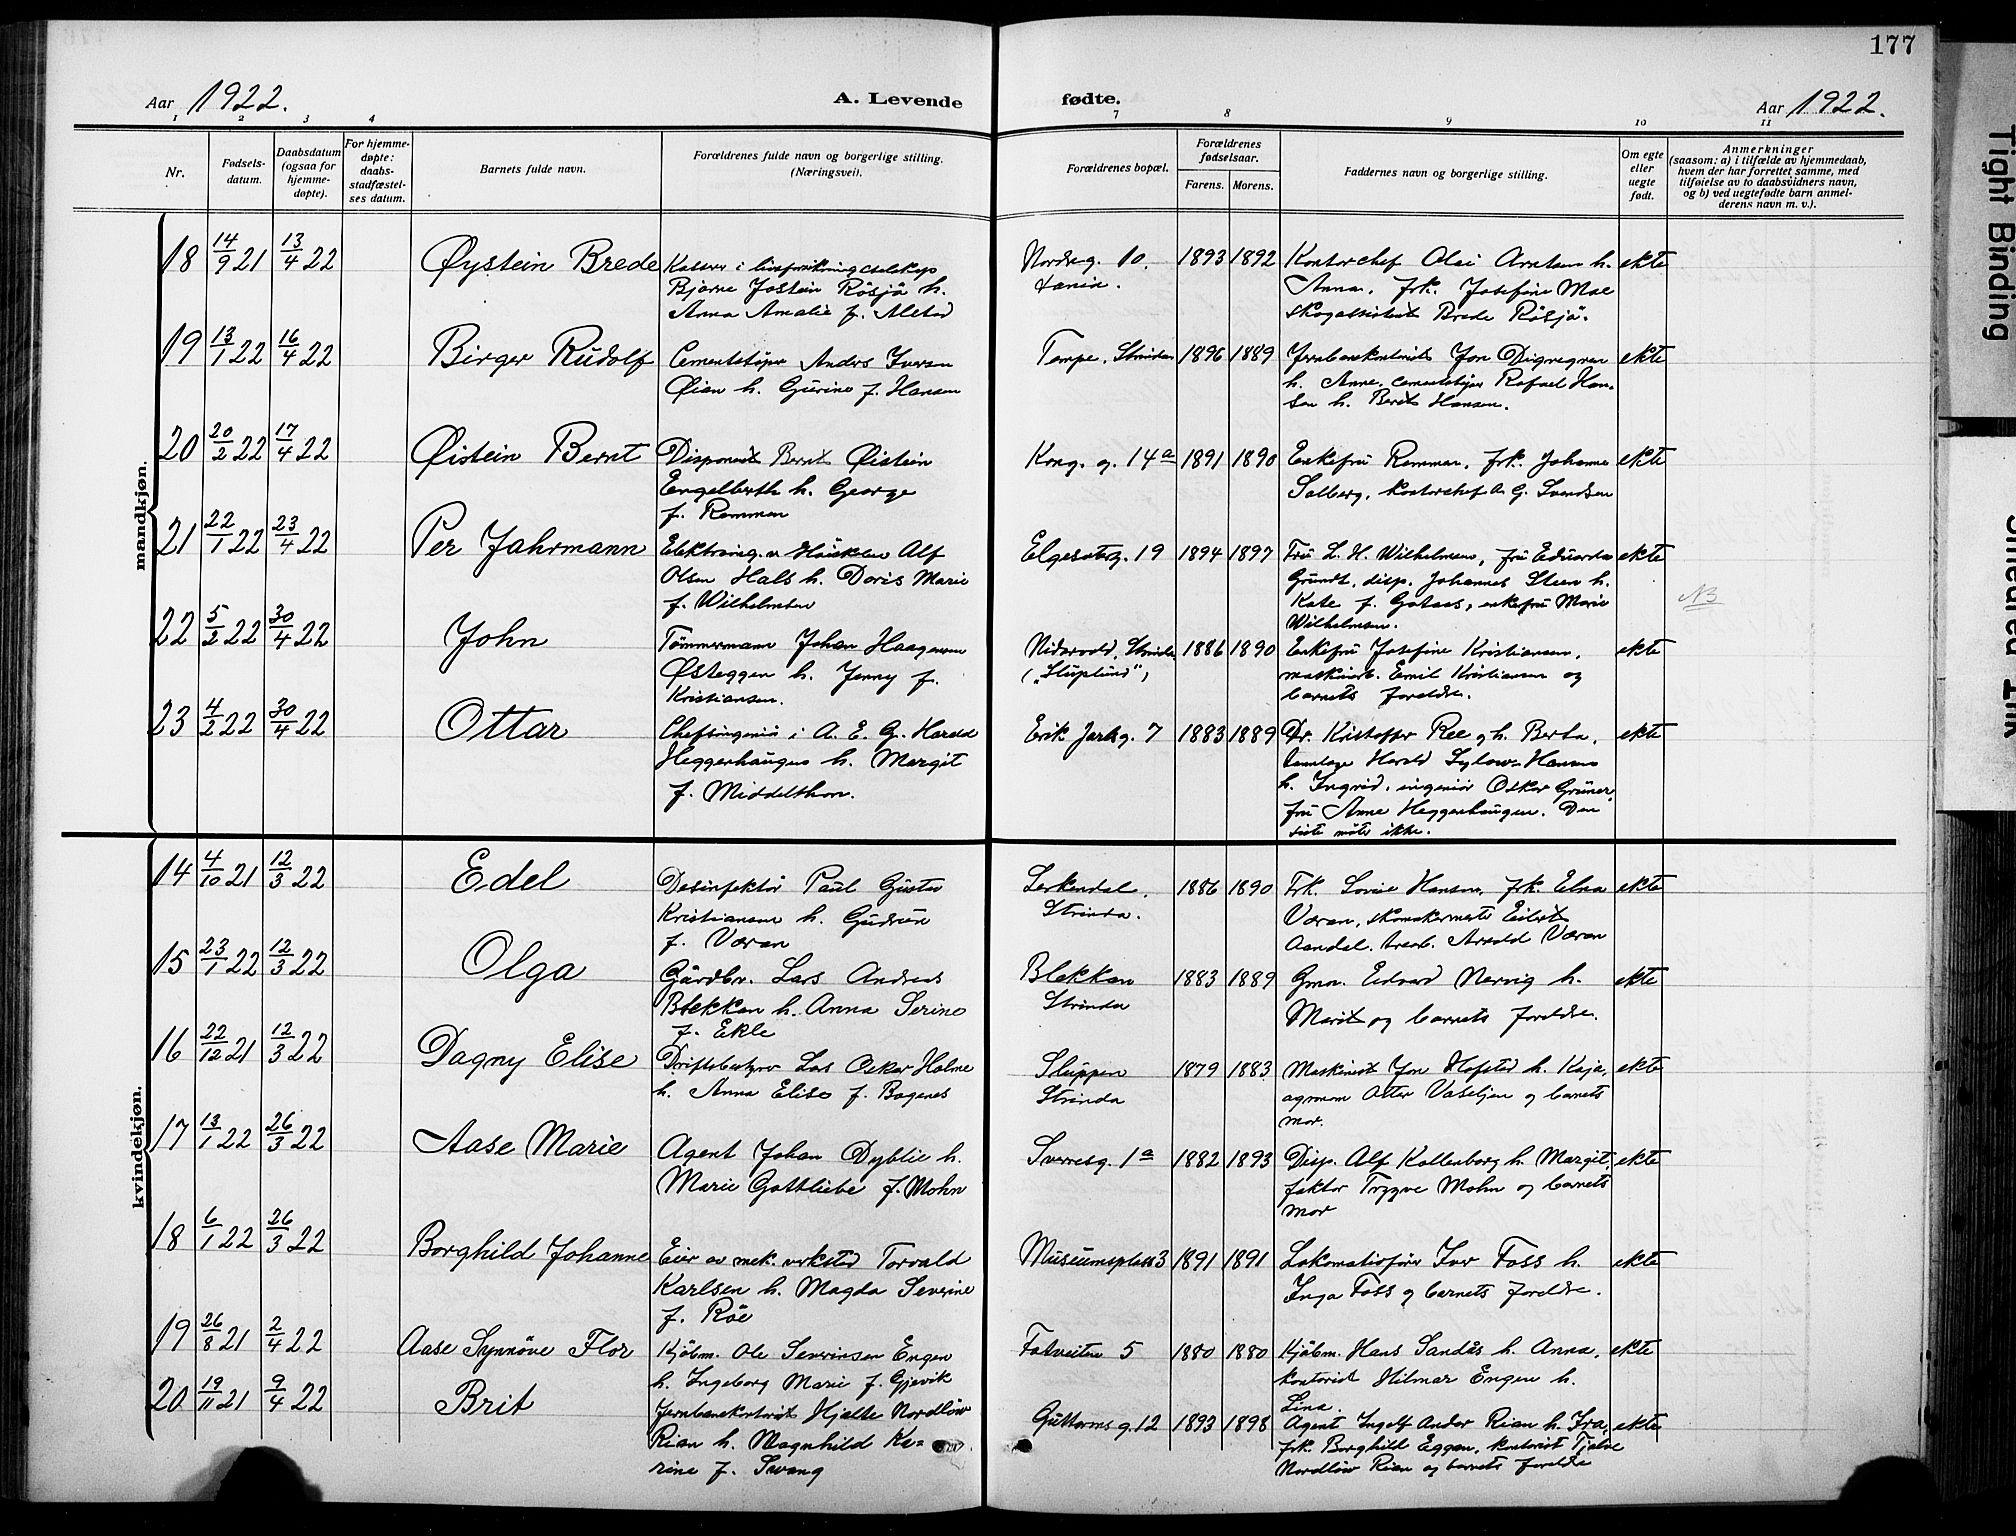 177
Aar 1922.
A. Levende
fødte.
Aar 1922.
1 2 3 4 7 8 9 10 11
Nr.
Fødsels-
datum.
Daabsdatum
(ogsaa for
hjemme-
døpte).
For hjemme-
døpte:
daabs-
stadfæstel-
ses datum.
Barnets fulde navn.
Forældrenes fulde navn og borgerlige stilling.
(Næringsvei).
Forældrenes bopæl.
Forældrenes
fødselsaar.
Farens. Morens.
Faddernes navn og borgerlige stilling.
Om egte
eller
uegte
født.
Anmerkninger
(saasom: a) i tilfælde av hjemmedaab,
hvem der har forrettet samme, med
tilføielse av to daabsvidners navn,
og b) ved uegtefødte barn anmel-
derens navn m. v.).
mandkjøn.
18 14/9 21 13/4 22 Øystein Brede
Kasserer i livsforsikringsselskap
Bjarne Jostein Rösjö h.
Anna Amalie f. Alstad
Nordreg. 10. 1893 1892
Kontorchef Olai Arntsen h.
Anna, frk. Josefine Moe
Skogassistent Brede Rösjö.
ekte
19 13/1 22 16/4 22 Birger Rudolf
Cementstöper Anders Iversen
Øian h. Gurine f. Hansen
Tempe, Strinda 1896 1889
Jernbanekontorist Jon
h. Anne, cementstöper Rafael Han-
sen h. Berit Hansen.
ekte
20 20/2 22 17/4 22 Øistein Bernt
Disponent Bernt Øistein
Engelbreth h. George
f. Remmen
Kong. g. 14a 1891 1890
Enkefru Remmen, frk. Johanne
Solberg, kontorchef A. G. Svendsen
ekte
21 22/1 22 23/4 22 Per Jahrmann
Elektroing. v. Höiskolen Alf
Olsen Hals h. Doris Marie
f. Wilhelmsen
Elgesetersg. 19 1894 1897
Fru L. H. Wilhelmsen, fru Edvarda
Grundt, disp. Johannes Steen h.
Kate f. Gotaas, enkefru Marie
Wilhelmsen.
ekte
NB
22 5/2 22 30/4 22 John
Tömmermann Johan Haagensen
Østeggen h. Jenny f.
Kristiansen.
Nidarvold, Strinda
("Sluplund")
1886 1890
Enkefru Josefine Kristiansen,
maskinarb. Emil Kristiansen og
barnets foreldre.
ekte
23 4/2 22 30/4 22 Ottar
Chefsingeniör i A. E. G. Harald
Heggenhaugen h. Margit
f. Middelthon.
Erik Jarlsg. 7 1883 1889
Dr. Kristoffer Ree og h. Berta,
tannlæge Harald Sylow-Hansen
h. Ingrid, ingeniör Oskar Grüner,
fru Anne Heggenhaugen. Den
siste möte ikke.
ekte
kvindekjøn.
14 4/10 21 12/3 22 Edel
Desinfektör Paul Gustav
Kristiansen h. Gudrun
f. Væran
Lerkendal,
Strinda.
1886 1890
Frk. Lovise Hansen, frk. Elna
Væran, skomakermester Eilert
Aandal, arb. Arvald Væran
ekte
15 23/1 22 12/3 22 Olga
Gårdbr. Lars Andreas
Blekkan h. Anna Serine
f. Ekle
Blekkan
Strinda
1883 1889
Gmn. Edvard Nervig h.
Marit og barnets foreldre.
ekte
16 22/12 21 12/3 22 Dagny Elise
Driftsbestyrer Lars Oskar Holme
h. Anna Elise f. Bogenes
Sluppen
Strinda
1879 1883
Maskinist Jon Hofstad h. Kaja,
agronom Otter Vaseljen og barnets
mor.
ekte
17 13/1 22 26/3 22 Aase Marie
Agent Johan Dyblie h.
Marie Gottliebe f. Mohn
Sverresg. 1a 1882 1893
Disp. Alf Kallenborg h. Margit,
faktor Trygve Mohn og barnets
mor
ekte
18 6/1 22 26/3 22 Borghild Johanne
Eier av mek. verksted Torvald
Karlsen h. Magda Severine
f. Röe
Museumsplass 3 1891 1891
Lokomotivförer Ivar Foss h.
Inga Foss og barnets foreldre.
ekte
19 26/8 21 2/4 22 Aase Synnöve Flor
Kjöbm. Ole Severinsen Engen
h. Ingeborg Marie f. Gjevik
Totveiten 5 1880 1880
Kjöbm. Hans Sandås h. Anna,
kontorist Hilmar Engen h.
Lina.
ekte
20 19/11 21 9/4 22 Brit
Jernbanekontorist Hjalte Nordlöw
Rian h. Magnhild Ka-
rine f. Svang
Guttorms g. 12 1893 1898
Agent Ingolf Andor Rian h. Fra,
frk. Borghild Eggen, kontorist Tjalve
Nordlöw Rian og barnets foreldre
ekte
Tight Binding